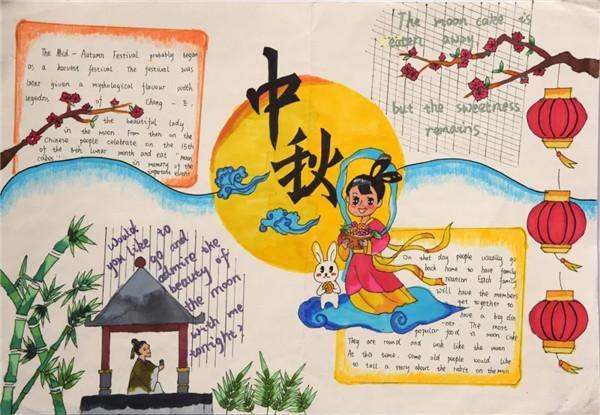 The Mid-Autumn Festival probably began
as a harvest festival. The festival was
later given a mythological flavour with
legends of Chang-E.
the beautiful lady
in the moon. From then on the
Chinese people celebrate on the 15th
of the 8th lunar month and eat "moon
cakes" in memory of the
event
中
秋
The moon cake is
eaten away
but the sweetness
remains
Would
you like to
go and
admire the
beauty of
the moon
with me
tonight?
On that day people usually go
back home to have family
reunion. Each family
will have the members
get together to
have a big din
-ner The most
popular food is moon cake
They are round and look like the moon
At this time, some old people would like
to tell a story about the rabit on the moon